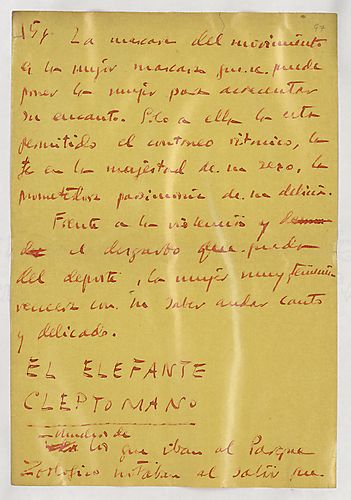 15y La mascara del movimiento
es la mejor mascara que se puede
poner la mujer para acrecentar
su encanto. Solo a ella la esta
permitido el contoneo ritmico, la
fe en la majestad de su sexo, la
prometedora parsimonia de su delicia.
Frente a la violencia y
el desgarbo que pueda
del deporte, la mujer muy femenina
vencera con su saber andar cauto
y delicado.
EL ELEFANTE
CLEPTOMANO
Muchos de
los que iban al Parque
Zoologico notaban al salir que